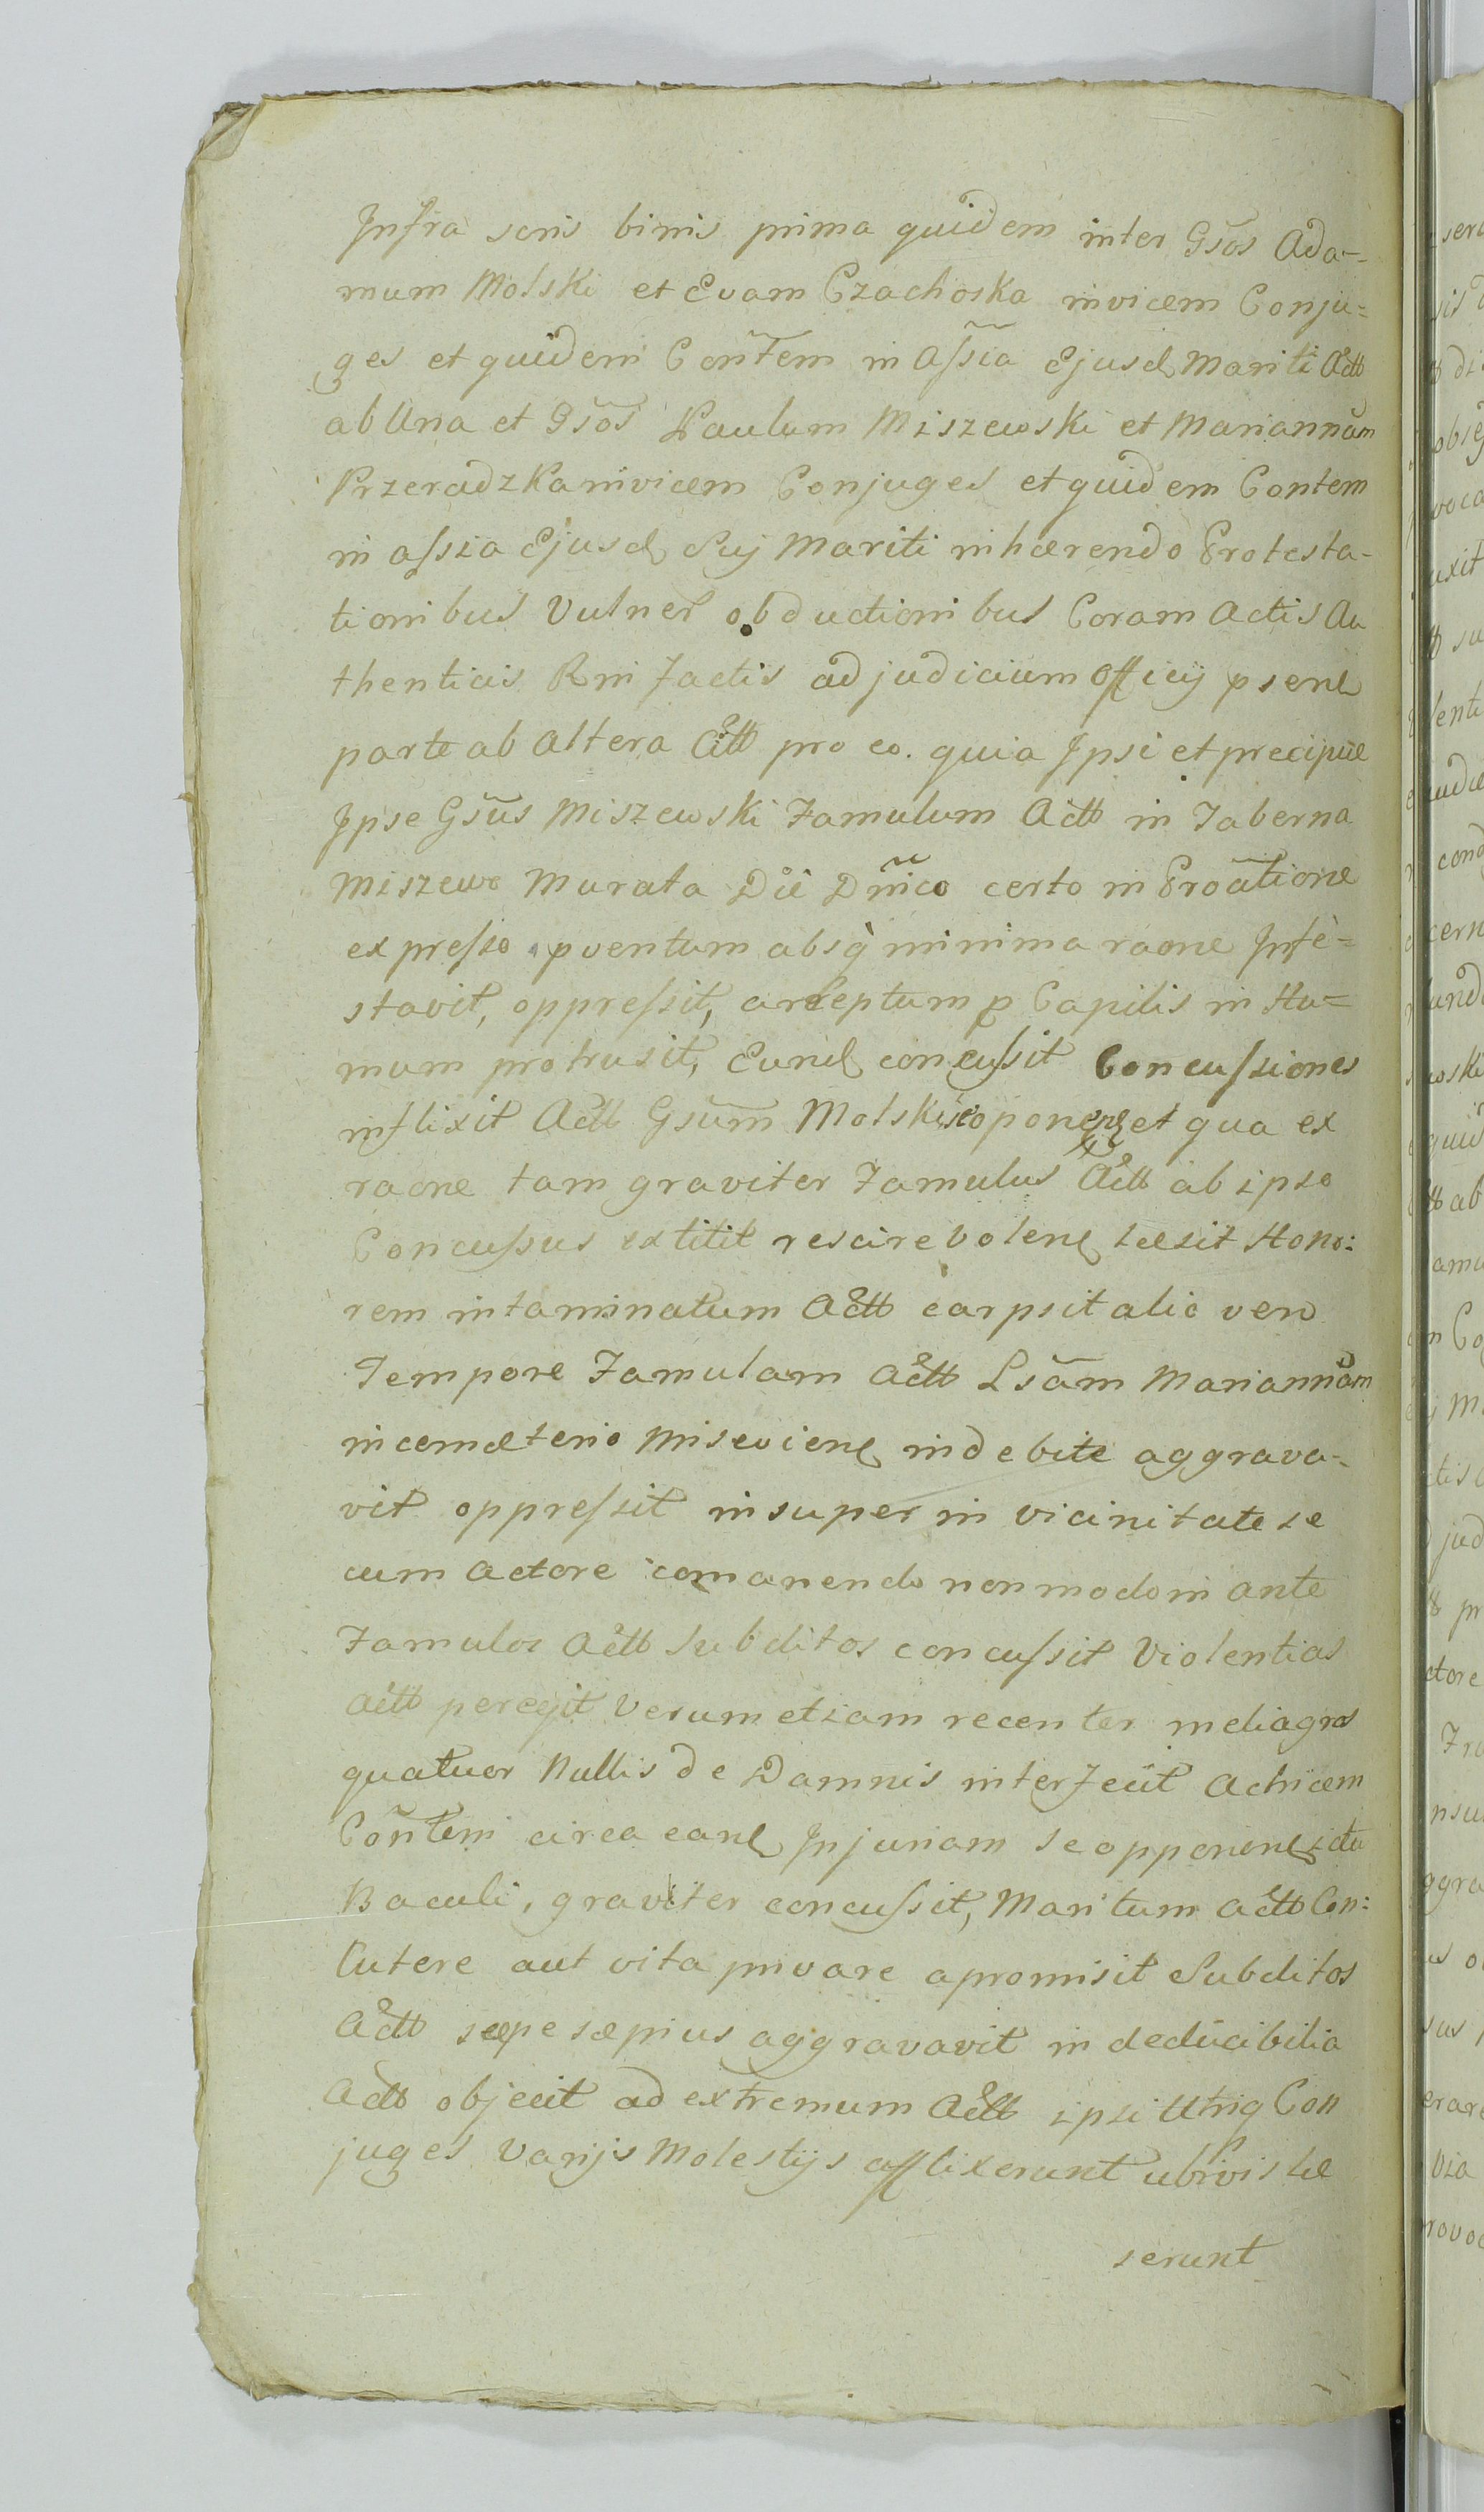 Infra scris binis prima quidem inter Gsos Ada-
mum Molski et Evam Czachoska invicem Conju=
ges et quidem Contem in assia Ejusd Mariti Actt
ab Una et Gsos Paulum Miszewski et Mariannam
Przeradzka invicem Conjuges et quidem Contem
in assia Ejusd Suj Mariti inhærendo Protesta-
tionibus Vulner obductionibus Coram Actis Au
thenticis Rni factis ad judicium Officij psene
parte ab Altera Citt pro eo. quia Ipsi et precipue
Ipse Gsus Miszewski Famulum Actt in Taberna
Miszewo Murata Die Dnico certo in Proatione
expresso pventum absq minima raone Infe=
stavit, oppressit, arreptum p Capilis in Hu=
mum protrusit, Eund concussit Concussiones
inflixit Actt Gsum Molski et qua ex
raone tam graviter Famulus Actt ab ipso
Concussus extitit rescire volene læsit Hono:
rem intaminatum Actt carpsit alio vero
Tempore Famulam Actt Lsam Mariannam
in cemæterio Misewiene indebite aggrava-
vit oppressit insuper in vicinitate se
cum Actore comanendo non modo in ante
Famulos Actt Subditos concussit Violentias
Actt peregit Verum etiam recenter meliagros
quatuor Nullis de Damnis interfecit Actricem
Contem circa eand Injuriam se opponene ictu
Baculi, graviter concussit, Maritum Actt Con:
cutere aut vita privare apromisit Subditos
Actt sæpe sæpius aggravavit indeducibilia
Actt objecit ad extremum Actt ipsi Utriq Con
juges Varijs Molestijs afflixerunt ubivis læ
serunt